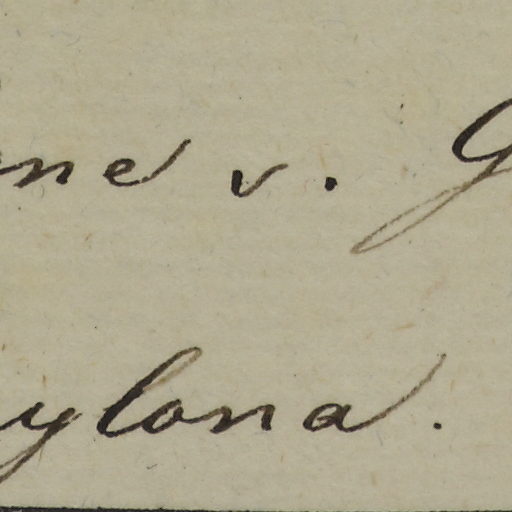 ne v. G
ylona.